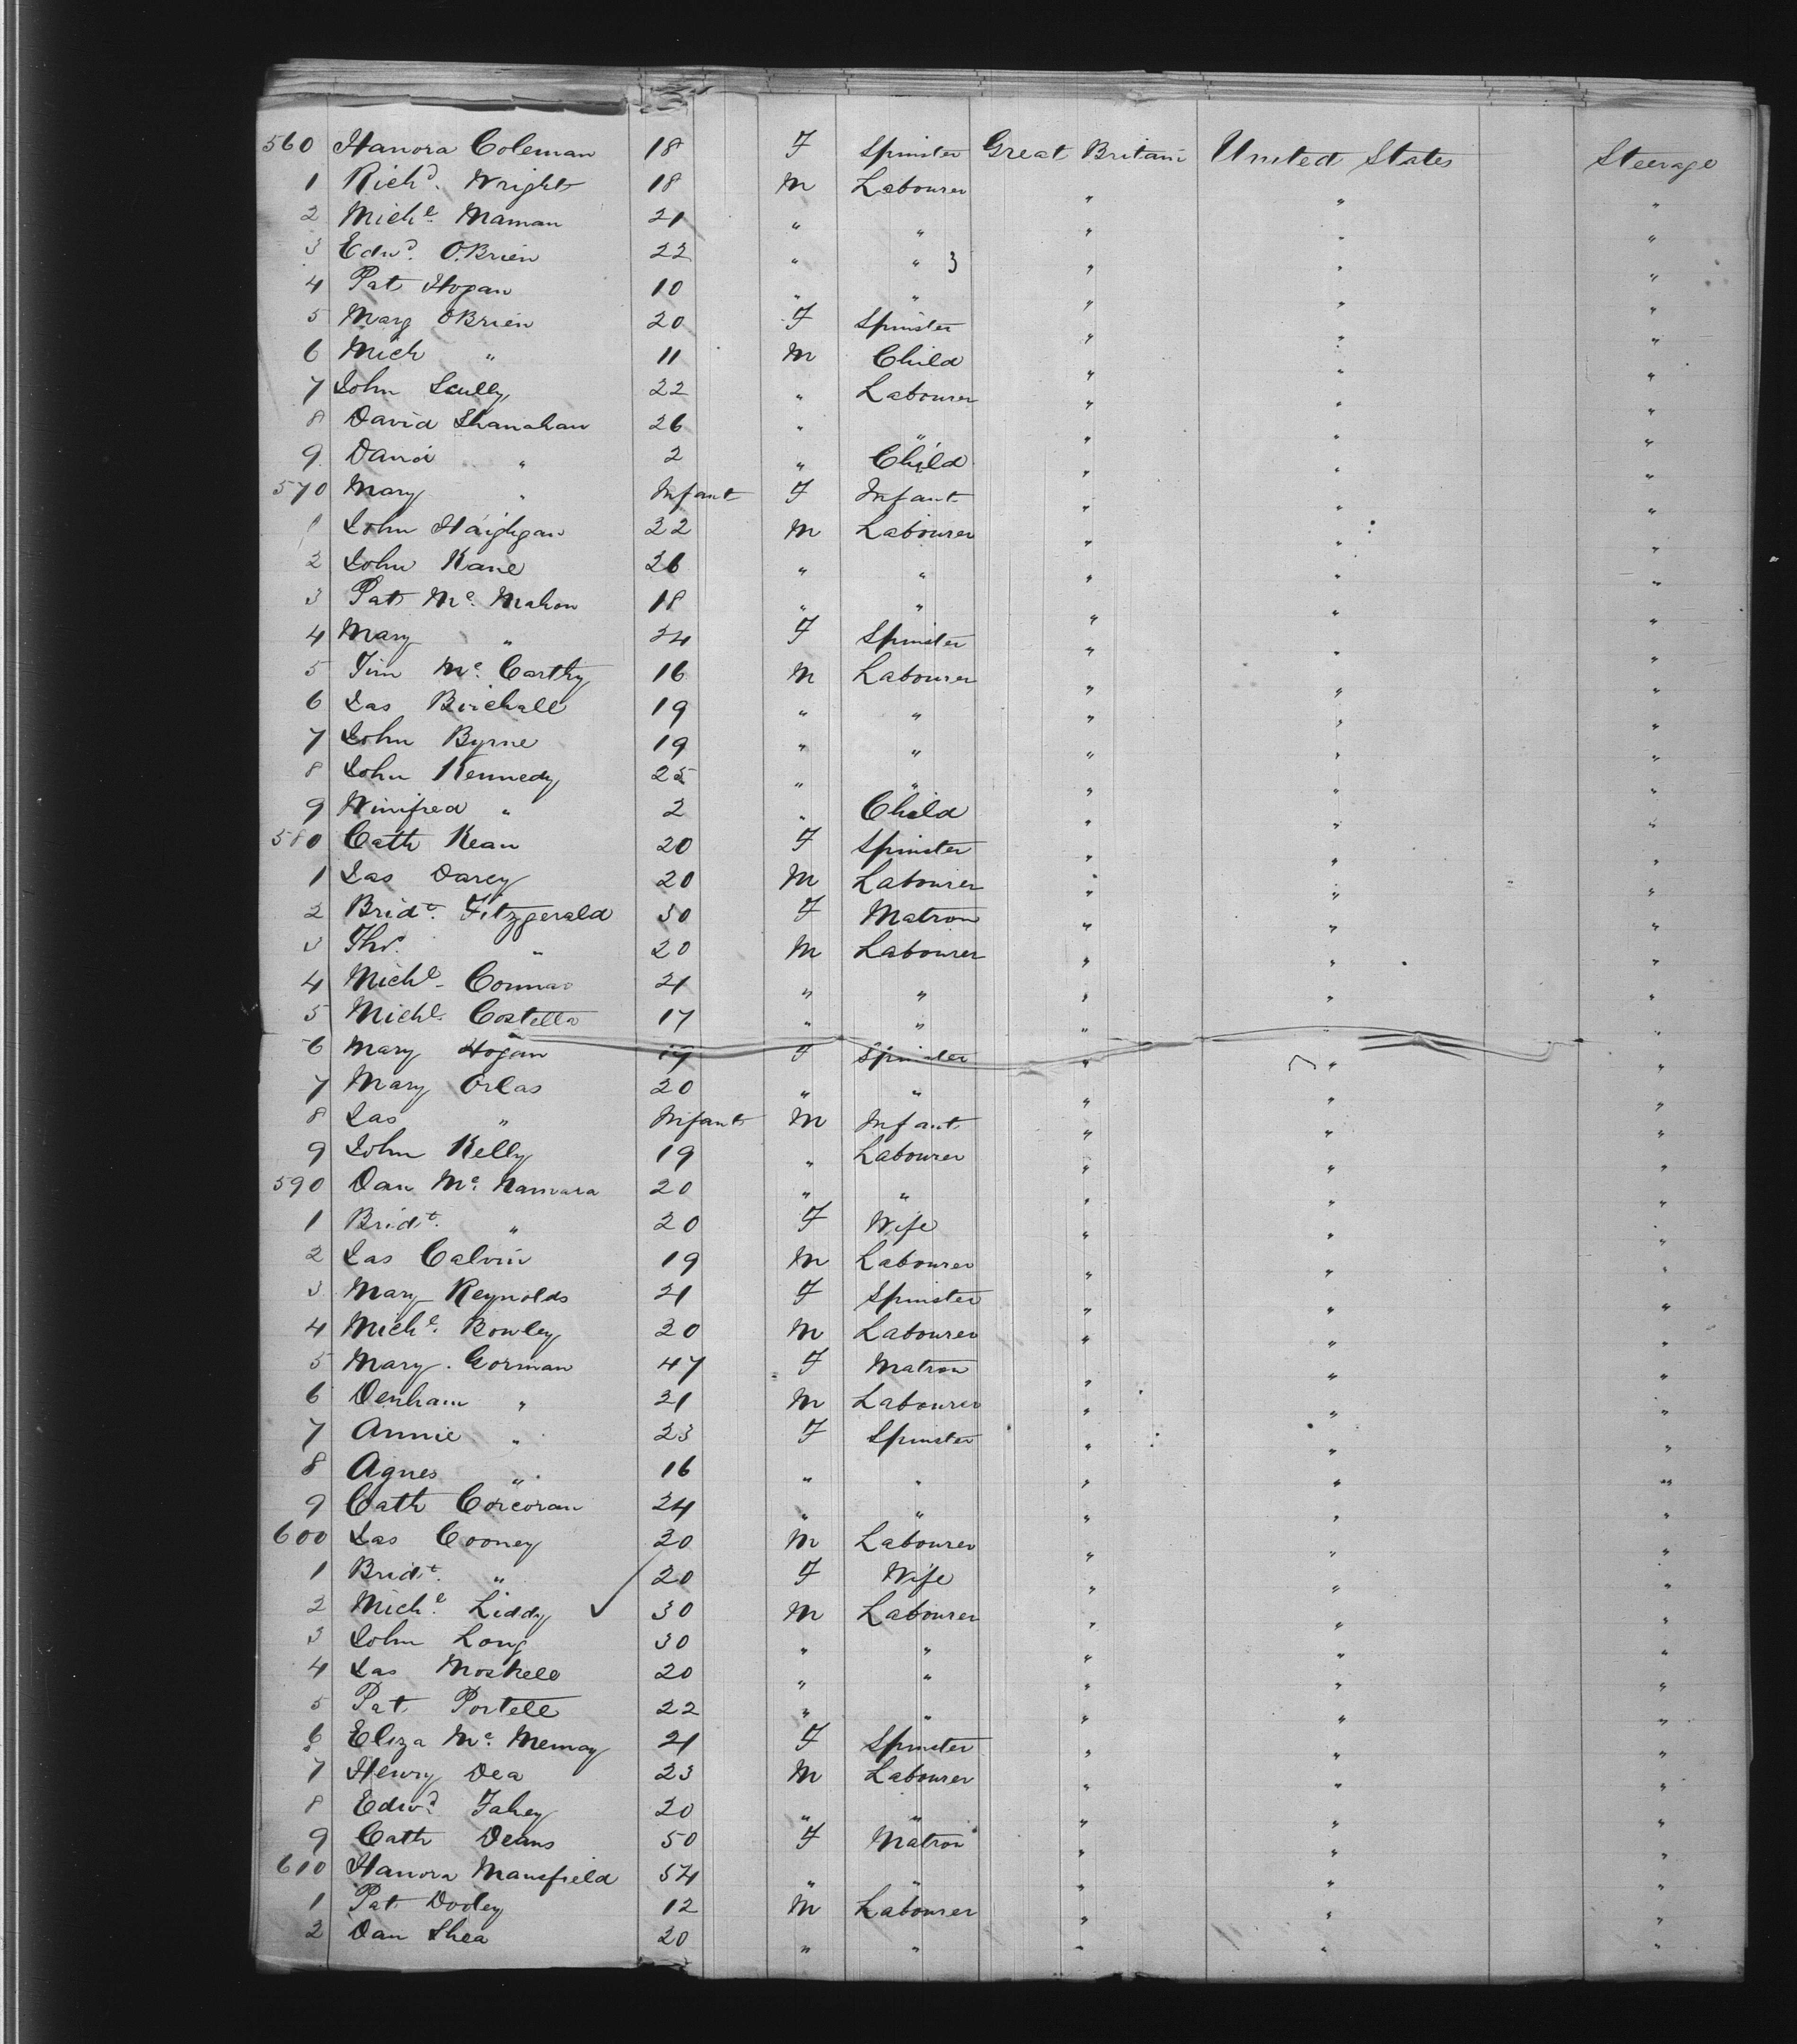 560 Hanora Coleman 18 F Spinster Great Britain United States Steerage
1 Richd. Wright 18 M Labourer " " "
2 Michl. Maman 21 " " " " "
3 Edwd. O'Brien 22 " " 3 " " "
4 Pat Hogan 10 " " " " "
5 Marg OBrien 20 F Spinster " " "
6 Mich " 11 M Child " " "
7 John Scully 22 " Labourer " " "
8 David Shanahan 26 " " " " "
9 David " 2 " Child " " "
570 Mary " Infant F Infant " " "
1 John 22 M Labourer " " "
2 John Kane 26 " " " " "
3 Pat Mc. Mahon 18 " " " " "
4 Mary " 24 F Spinster " " "
5 Tim Mc. Carthy 16 M Labourer " " "
6 Jas Birchall 19 " " " " "
7 John Byrne 19 " " " " "
8 John Kennedy 25 " " " " "
9 Winifred " 2 " Child " " "
580 Cath Kean 20 F Spinster " " "
1 Jas Darcy 20 M Labourer " " "
2 Bridt. Fitzgerald 30 F Matron " " "
3 Thos. " 20 M Labourer " " "
4 Michl. 21 " " " " "
5 Michl. Costello 17 " " " " "
6 Mary Hogan 19 F Spinster " " "
7 Mary 20 " " " " "
8 Jas " Infant M Infant " " "
9 John Kelly 19 " Labourer " " "
590 Dan Mc. Namara 20 " " " " "
1 Bridt. " 20 F Wife " " "
2 Jas Calvin 19 M Labourer " " "
3 Mary Reynolds 21 F Spinster " " "
4 Michl. Rowley 20 M Labourer " " "
5 Mary Gorman 47 F Matron " " "
6 Denham " 21 M Labourer " " "
7 Annie " 23 F Spinster " " "
8 Agnes " 16 " " " " "
9 Cath Corcoran 24 " " " " "
600 Jas Cooney 20 M Labourer " " "
1 Bridt. " 20 F Wife " " "
2 Michl. Liddy ✓ 30 M Labourer " " "
3 John Long 30 " " " " "
4 Jas 20 " " " " "
5 Pat Portell 22 " " " " "
6 Eliza Mc. 21 F Spinster " " "
7 Henry Dea 23 M Labourer " " "
8 Edwd. Fahey 20 " " " " "
9 Cath Deans 50 F Matron " " "
610 Hanora Mansfield 54 " " " " "
1 Pat Dooley 12 M Labourer " " "
2 Dan Shea 20 " " " " "